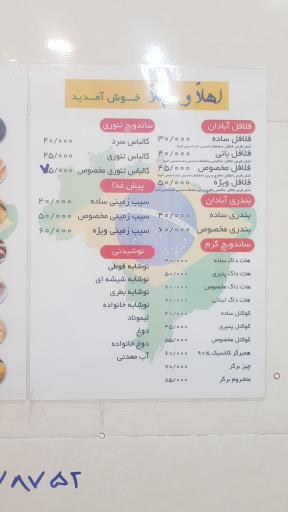 اهلاً و سهلاً خوش آمدید
فلافل آبادان
فلافل ساده ۳۰/۰۰۰
فلافل بانی ۴۰/۰۰۰
فلافل مخصوص ۴۵/۰۰۰
فلافل ویژه ۵۰/۰۰۰
بندری آبادان
بندری ساده ۴۰/۰۰۰
بندری مخصوص ۶۰/۰۰۰
ساندویچ گرم
هات داگ ساده
هات داگ پنیری ۵۰/۰۰۰
هات داگ مخصوص ۶۰/۰۰۰
هات داگ لبنانی ۷۰/۰۰۰
کوکتل ساده ۴۰/۰۰۰
کوکتل پنیری ۴۵/۰۰۰
کوکتل مخصوص ۵۵/۰۰۰
همبرگر کلاسیک ۹۰% ۶۰/۰۰۰
چیز برگر ۷۰/۰۰۰
ماشروم برگر ۸۵/۰۰۰
ساندویچ تنوری
کالباس سرد ۴۰/۰۰۰
کالباس تنوری ۴۵/۰۰۰
کالباس تنوری مخصوص ۷۵/۰۰۰
پیش غذا
سیب زمینی ساده ۴۰/۰۰۰
سیب زمینی مخصوص ۵۰/۰۰۰
سیب زمینی ویژه ۶۰/۰۰۰
نوشیدنی
نوشابه قوطی
نوشابه شیشه ای
نوشابه بطری
نوشابه خانواده
لیموناد
دوغ
دوغ خانواده
آب معدنی
۷۸۷۵۲